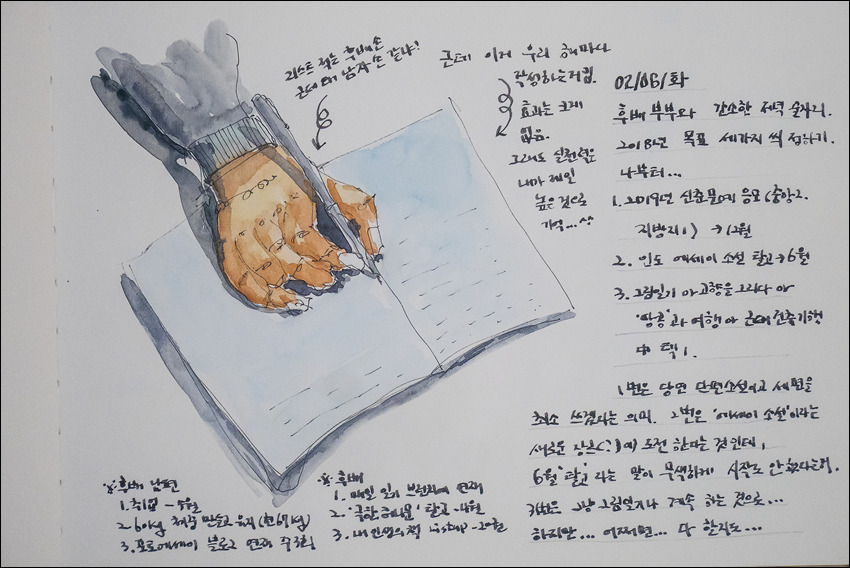 리스트 적는 후배 손
근데 왜 남자 손 같냐!
근데 이거 우리 해마다
작성하는거임.
효과는 크게
없음.
그래도 실현력은
내가 제일
높은 것으로
기억...
02/06/화
후배 부부와 간소한 저녁 술자리.
2018년 목표 세가지 씩 정하기.
나부터...
1. 2019년 신춘문예 응모 (중앙2.
지방지1) → 12월
2. 인도 에세이 소설 탈고 → 6월
3. 그림일기 아 고향을 그리다 아
'땅콩'과 여행 아 근대건축기행
中 택1.
1번은 당연 단편소설이고 세편을
최소 쓰겠다는 의미. 2번은 '에세이 소설'이라는
새로운 장르(?)에 도전 한다는 것인데,
6월 '탈고' 라는 말이 무색하게 시작도 안했다는거.
3번은 그냥 그림일기나 계속 하는 것으로...
하지만... 어쩌면... 다 할지도...
※ 후배 남편
1. 취업 - 5월
2. 60kg 체중 만들고 유지 (현 67kg)
3. 포토에세이 블로그 연재 주 3회
※ 후배
1. 매일 일기 브런치에 연재
2. 탈고 - 4월
3. 내 인생의 책 list up - 20권